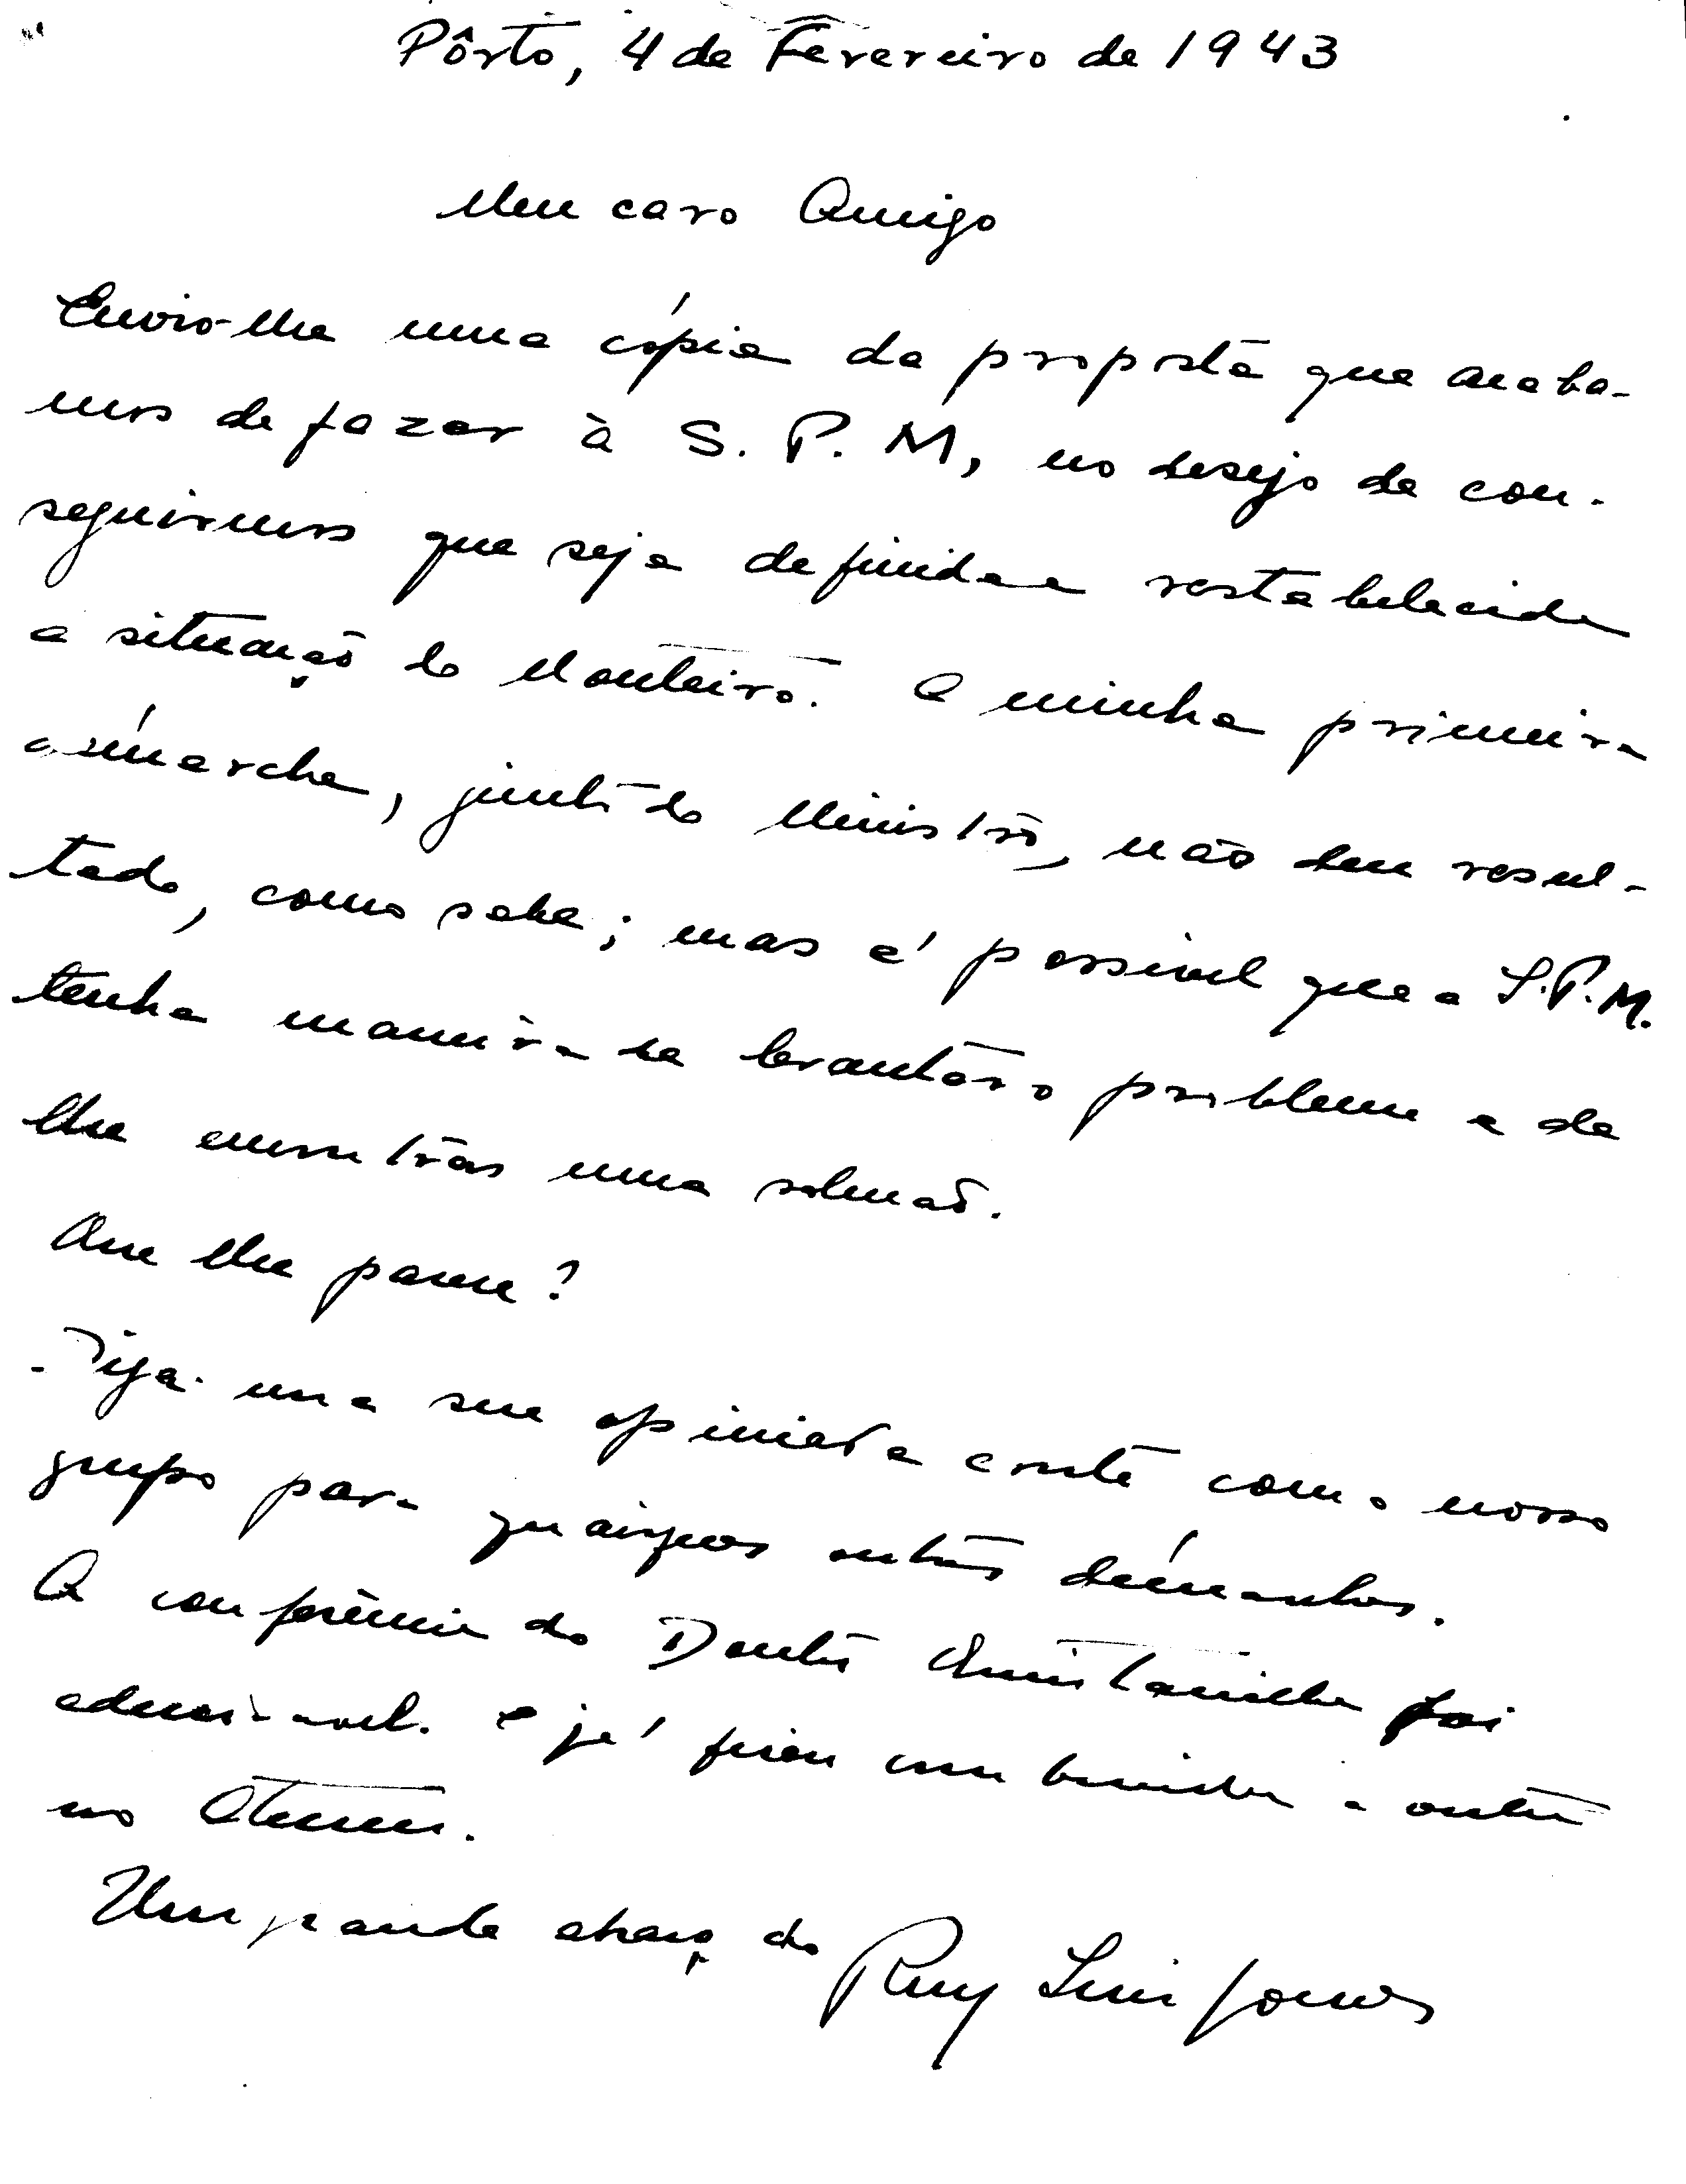 Pôrto, 4 de Fevereiro de 1943
Meu caro Amigo
Envio-lhe uma cópia da proposta que acaba-
mos de fazer à S. P. M, no desejo de con-
seguirmos que seja definida e restabelecida
a situação do Monteiro. A minha primeira
démarche, junto do Ministro, não deu resul-
tado, como sabe; mas é possivel que a S.P.M.
tenha maneira de levantar o problema e de
lhe encontrar uma solução.
Que lhe parece?
Diga-me a sua opinião e conte com o nosso
grupo para quaisquer outras démarches.
A conferência do Doutor foi
admiravel. e já ficou combinada a outra
no Ateneu.
Um grande abraço do Ruy Luis Gomes